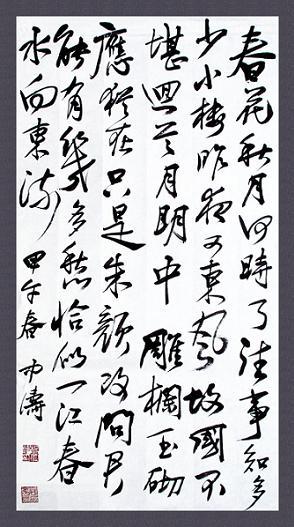 春花秋月何時了往事知多
少小樓昨夜又東風故國不
堪迴首月明中雕欄玉砌
應猶在只是朱顏改問君
能有幾多愁恰似一江春
水向東流 甲午春 濤